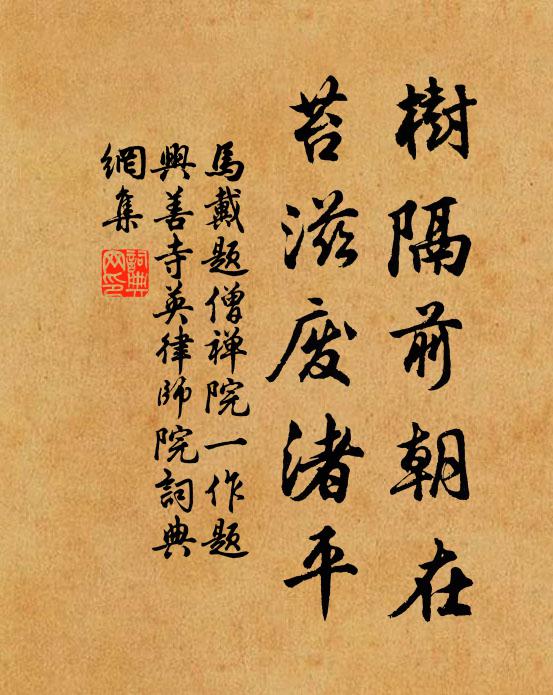 樹隔前朝在
苔滋废渚平
馬戴题僧禅院一作题
興善寺英律師院詞典
網集
詞典
网印